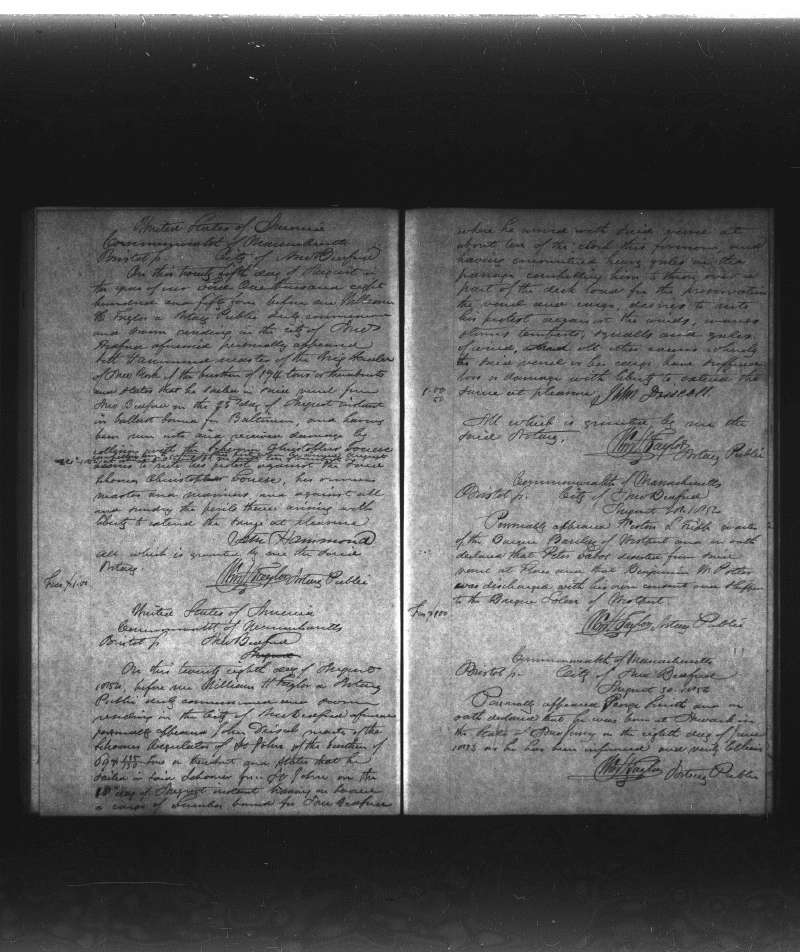 United States of America
Commonwealth of Massachusetts
Bristol ss. City of New Bedford
On this twenty fifth day of August in
the year of our Lord One thousand eight
hundred and fifty four before me William
H Taylor a Notary Public duly commissioned
and sworn residing in the city of New
Bedford aforesaid personally appeared
Hammond master of the Brig
of New York of the burthen of 194 tons or thereabouts
and states that he sailed in said vessel from
New Bedford on the day of August instant
in ballast bound for Baltimore, and having
been run into and received damage by
Christopher
desires to note his protest against the said
Schooner Christopher his owners
master and mariners, and against all
and sundry the perils there arising with
liberty to extend the same at pleasure
Hammond
All which is granted by me the said
Notary.
Wm H Taylor Notary Public
Fees $1.00
United States of America
Commonwealth of Massachusetts
Bristol ss. New Bedford
August
On this twenty eighth day of August
1854, before me William H Taylor a Notary
Public duly commissioned and sworn
residing in the City of New Bedford aforesaid
personally appeared John Driscoll master of the
Schooner of St John of the burthen of
tons or thereabout and states that he
sailed in said Schooner from St John on the
18th day of August instant having on board
a cargo of Lumber bound for New Bedford
where he arrived with said vessel at
about ten of the clock this forenoon, and
having encountered heavy gales on the
passage compelling him to throw over a
part of the deck load for the preservation
the vessel and cargo, desires to note
his protest against the winds, waves
storms tempests, squalls and gales
of wind, and all other causes whereby
the said vessel or her cargo have suffered
loss or damage with liberty to extend the
same at pleasure John Driscoll
1.00
50
All which is granted by me the
said Notary.
Wm H Taylor Notary Public
Commonwealth of Massachusetts
Bristol ss. City of New Bedford
August 1854
Personally appeared master
of the Barque of Westport and on oath
declared that Peter deserted from said
vessel at Flores and that Benjamin W. Potter
was discharged with his own consent and shipped
to the Barque Solon of Westport.
Wm H Taylor Notary Public
Commonwealth of Massachusetts
Bristol ss. City of New Bedford
August 30. 1854
Personally appeared George Smith and on
oath declared that he was born at Newark in
the State of New Jersey on the eighth day of June
as he has been informed and verily believes
Wm H Taylor Notary Public